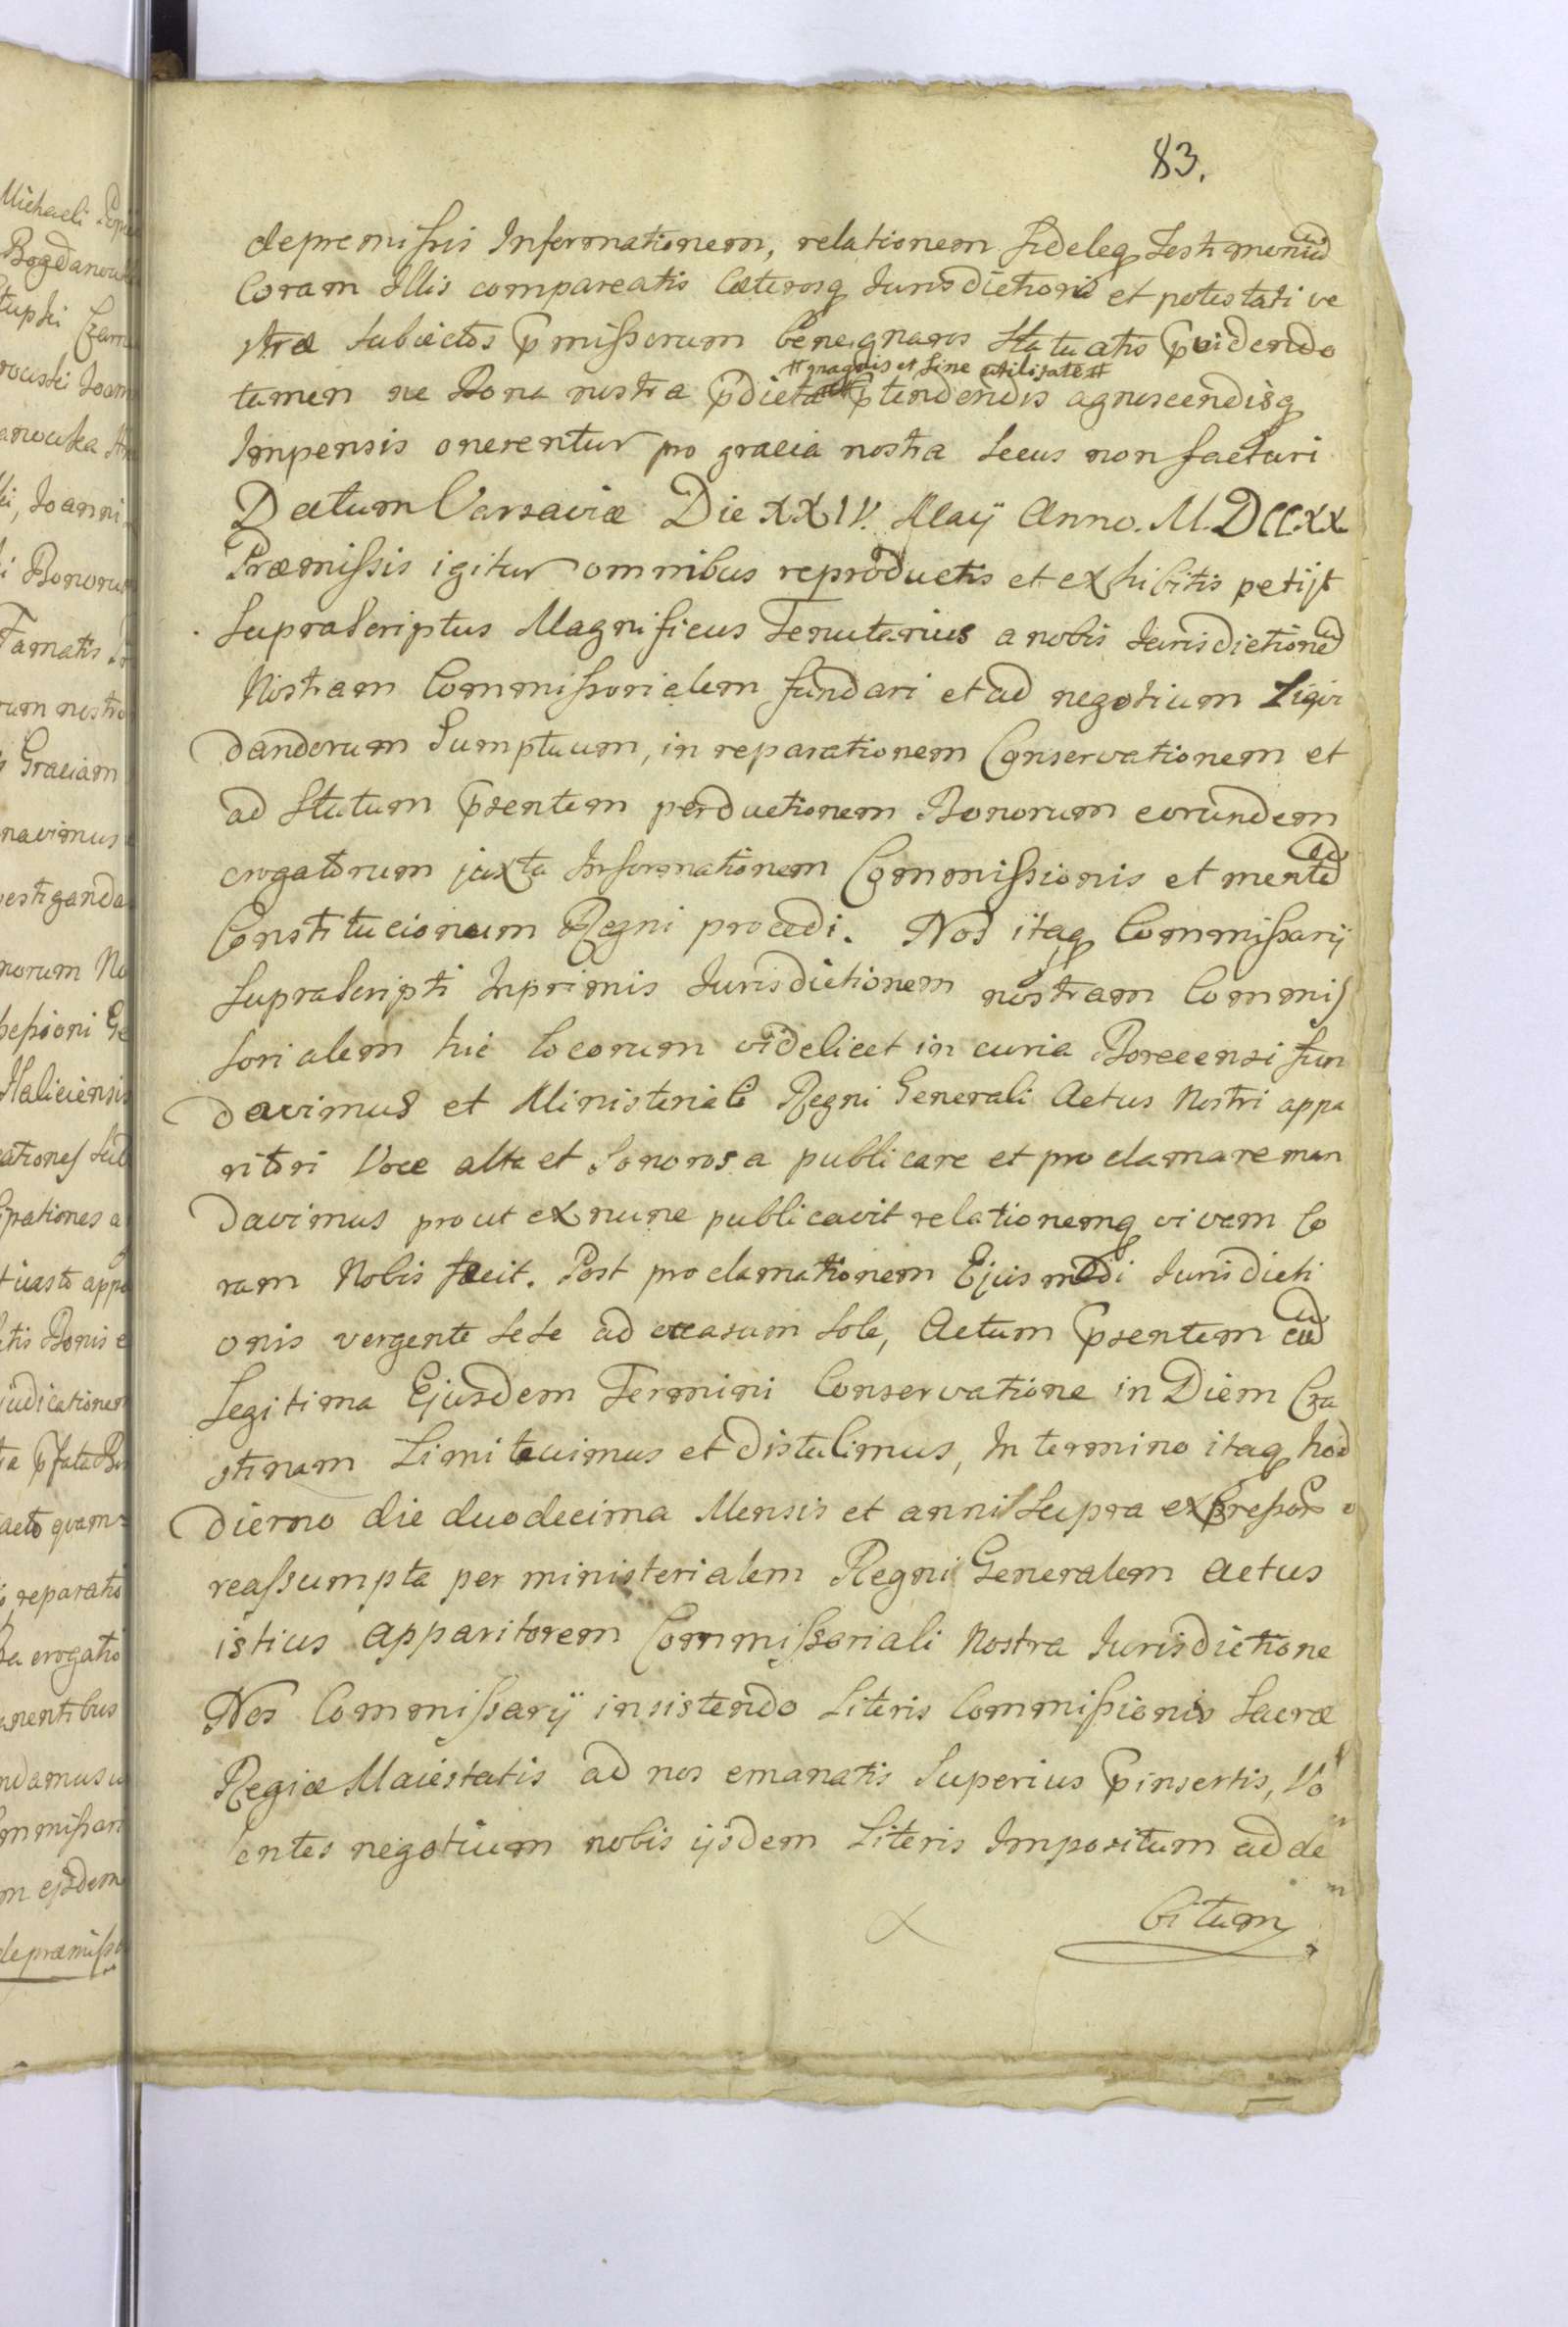 83.
depremissis Informationem, relationem fideleq Testimoniu
Coram Illis compareatis Cæterosq Jurisdictioni et potestati ve
stræ Subiectos pmissorum bene gnaros Statuatis pvidendo
## magnis et Sine utilitate ##
tamen ne Bona nostra pdicta ptendendis agnoscendisq
Impensis onerentur pro gracia nostra Secus non facturi
Datum Varsaviæ Die XXIV. Maij Anno. M.DCC.XX
Præmissis igitur omnibus reproductis et exhibitis petijt
SupraScriptus Magnificus Tenutarius a nobis Jurisdictione
Nostram Commissorialem fundari et ad negotium Liqvi
dandorum Sumptuum, in reparationem Conservationem et
ad Statum psentem perductionem Bonorum eorundem
erogatorum juxta Informationem Commissionis et mente
Constitucionum Regni procedi. Nos itaq Commissarij
SupraScripti Inprimis Jurisdictionem nostram Commis
sorialem hic locorum videlicet in curia Borecensi fun
davimus et Ministeriali Regni Generali Actus Nostri appa
ritori Voce alta et Sonorosa publicare et proclamare man
davimus prout ex nunc publicavit relationemq vivam Co
ram Nobis fecit. Post proclamationem Ejusmodi Jurisdicti
onis vergente Sese ad occasum Sole, Actum psentem cu
Legitima Ejusdem Termini Conservatione in Diem Cra
stinam Limitavimus et distulimus, In termino itaq ho
dierno die duodecima Mensis et anni Supra expressor
reassumpta per ministerialem Regni Generalem actus
istius apparitorem Commissoriali Nostra Jurisdictione
Nos Commissarij insistendo Literis Commissionis Sacræ
Regiæ Maiestatis ad nos emanatis Superius pinsertis, Vo
lentes negotium nobis ijsdem Literis Impositum ad de
bitum
Michaeli
Bogdanow
anowska
Joanni
Bonorum
Famatis
Graciam
navimus
estiganda
norum No
Haliciensis
pationes a
tis Bonis e
judicationem
reparatio
erogatio
nentibus
ndamus u
m ejsdem
depræmiss